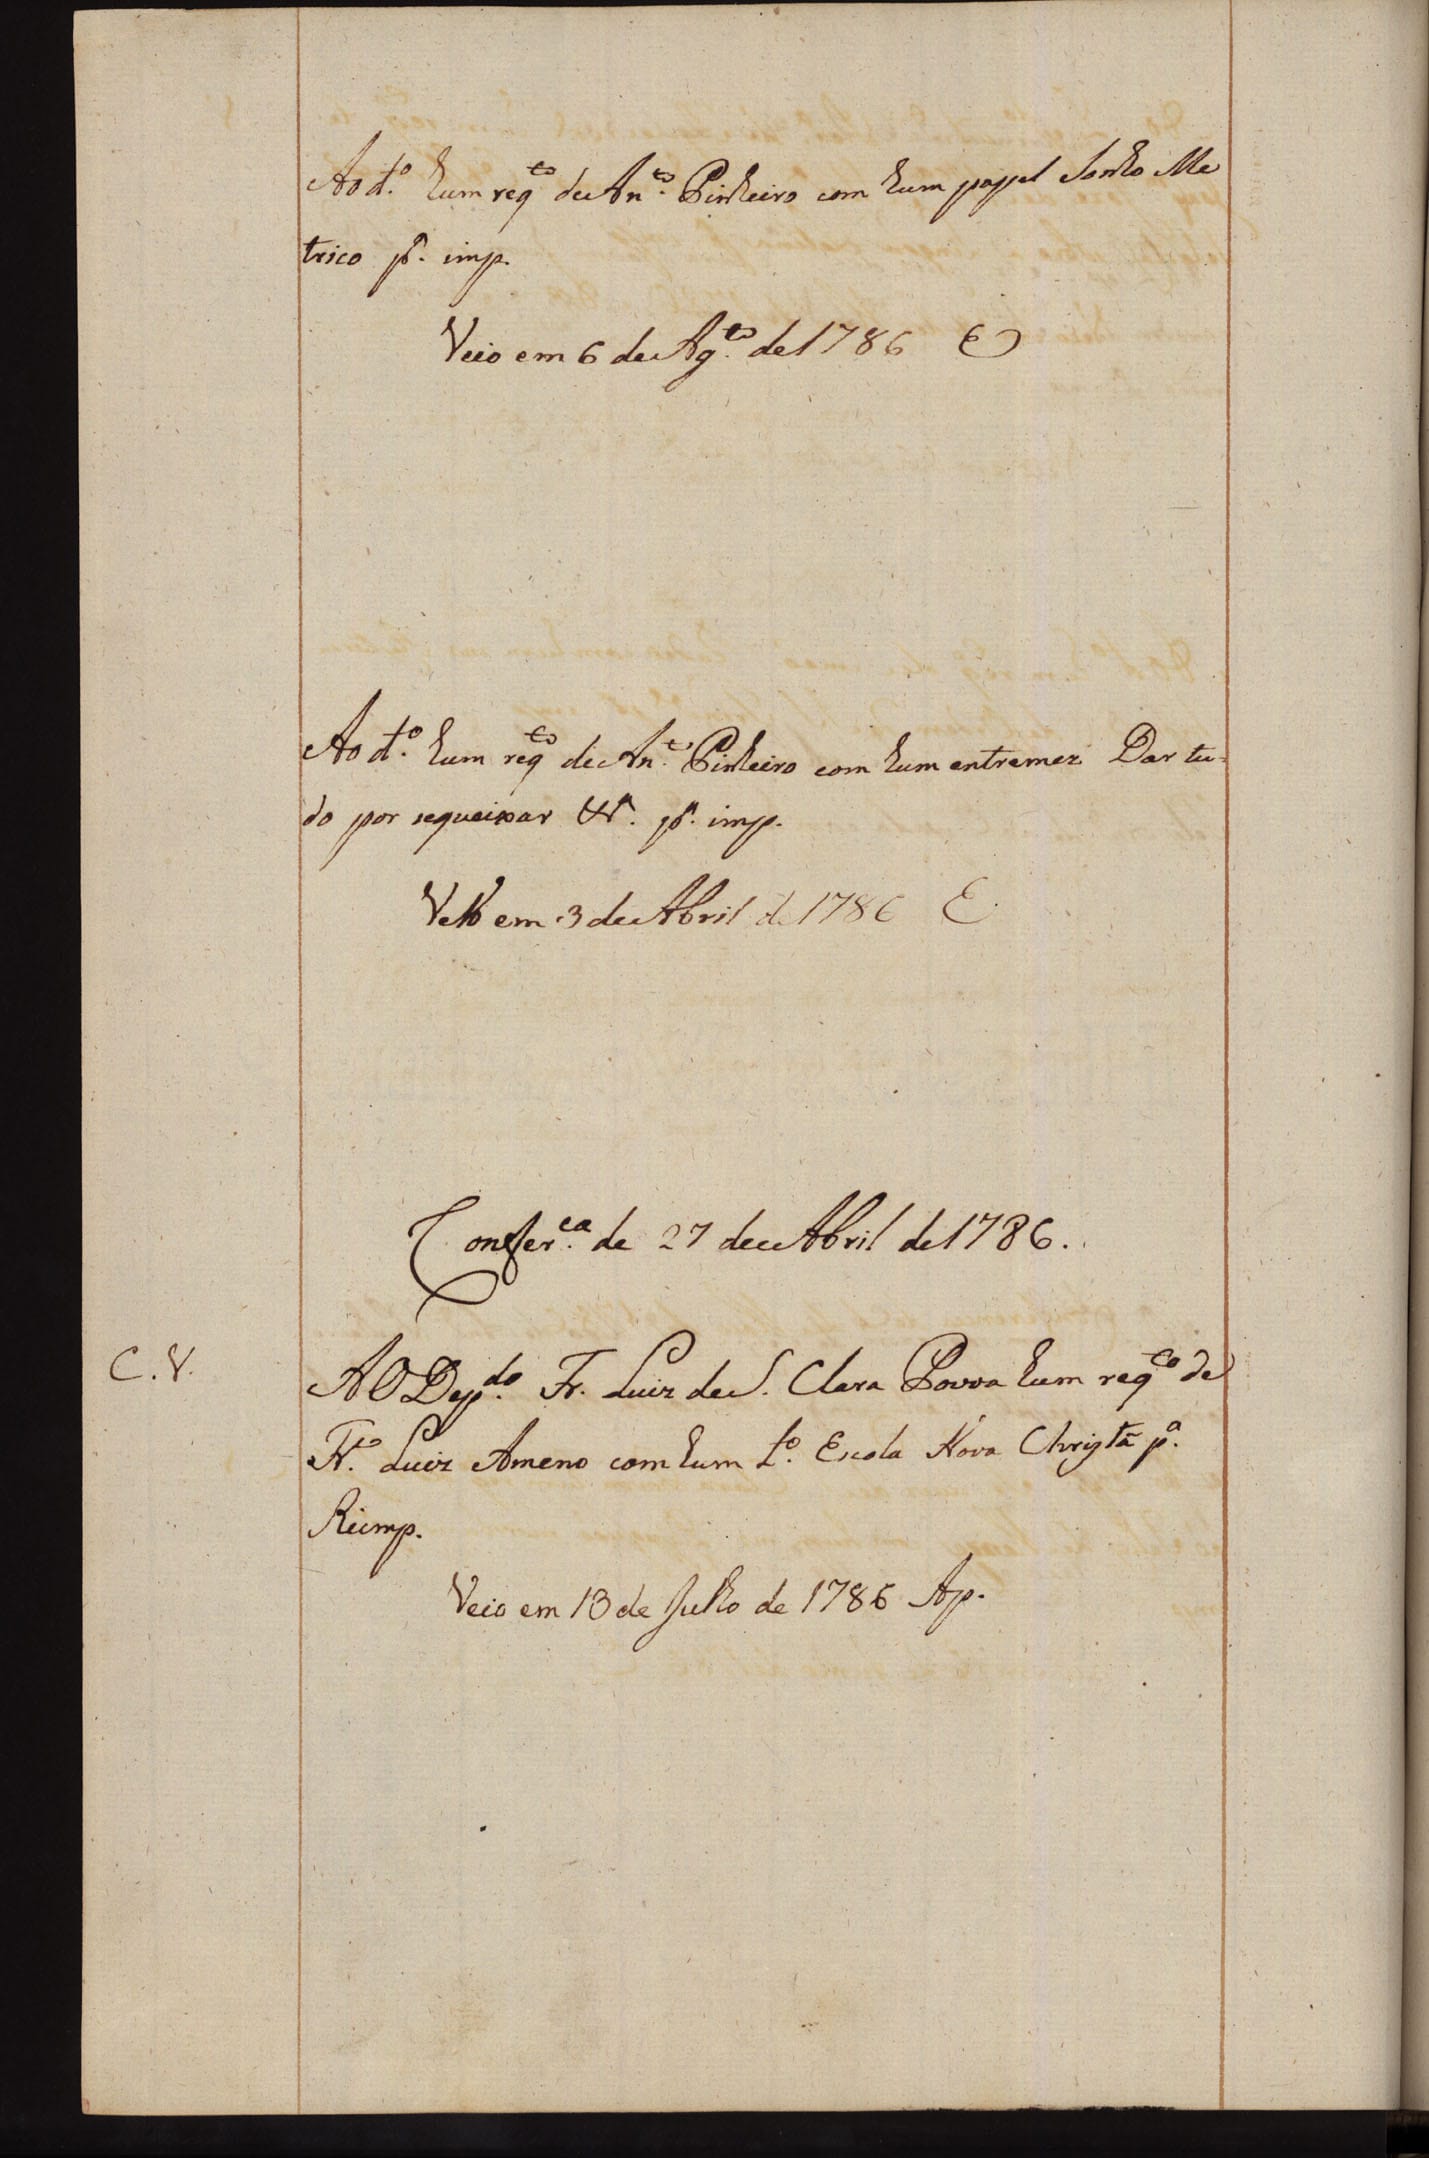 Ao d.º hum reqto de An.to Pinheiro com hum papel Sonho Me
trico p.ª imp.
Veio em 6 de Ag.to de 1786 E
Ao d.º hum reqto de An.to Pinheiro com hum entremez Dar tu-
do por se queixar &ª. p.ª imp.
Veio em 3 de Abril de 1786 E
Confer.ca de 27 de Abril de 1786.
C. V.
AO Dep.do Fr. Luiz de S. Clara Povoa hum reqto de
Fr.co Luiz Ameno com hum L.º Escola Nova Christã p.ª
Reimp.
Veio em 13 de Julho de 1786 Ap.